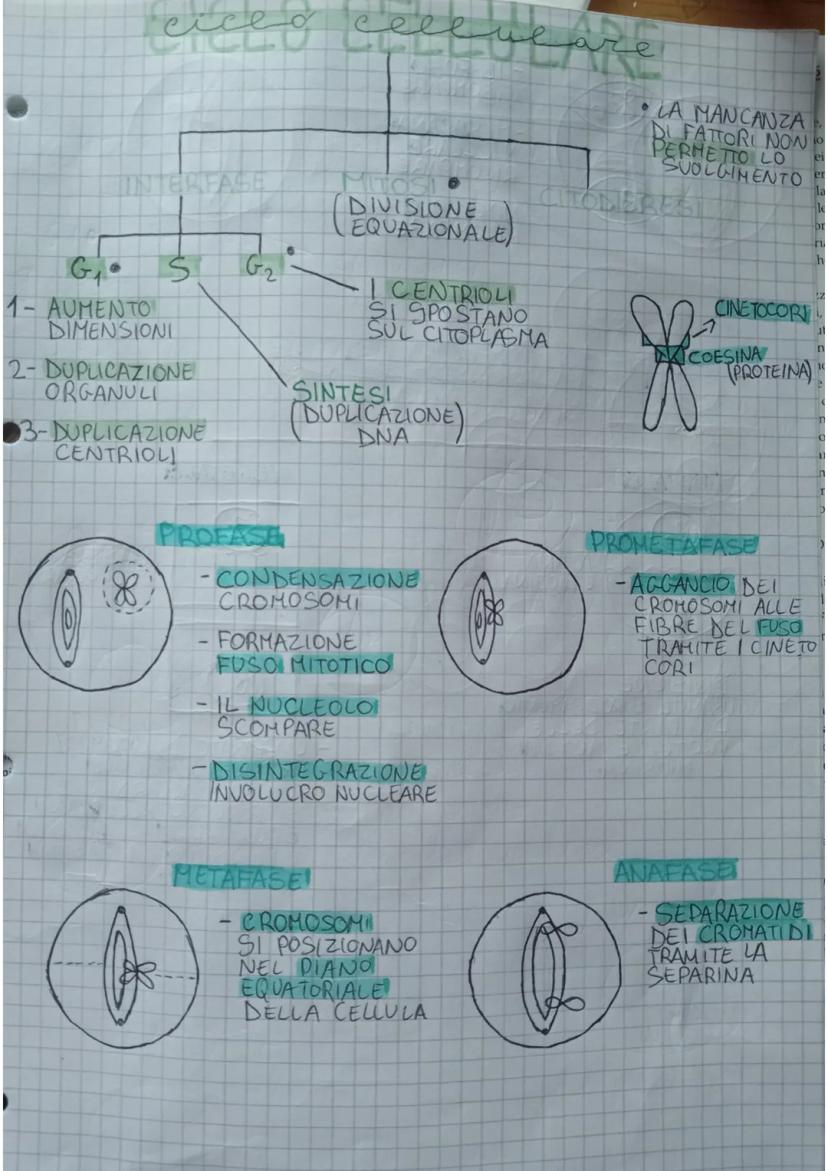 ciclo cellulare
CICLO CELLULARE
• LA MANCANZA
DI FATTORI NON
PERMETTO LO
SVOLGIMENTO
INTERFASE
MITOSI •
(DIVISIONE
EQUAZIONALE)
CITODIERESI
G1 •
S
G2 •
1- AUMENTO
DIMENSIONI
2- DUPLICAZIONE
ORGANULI
3- DUPLICAZIONE
CENTRIOLI
I CENTRIOLI
SI SPOSTANO
SUL CITOPLASMA
SINTESI
(DUPLICAZIONE)
DNA
CINETOCORI
COESINA
(PROTEINA)
PROFASE
- CONDENSAZIONE
CROMOSOMI
- FORMAZIONE
FUSO MITOTICO
- IL NUCLEOLO
SCOMPARE
- DISINTEGRAZIONE
INVOLUCRO NUCLEARE
PROMETAFASE
- AGGANCIO DEI
CROMOSOMI ALLE
FIBRE DEL FUSO
TRAMITE I CINETO
CORI
METAFASE
- CROMOSOMI
SI POSIZIONANO
NEL PIANO
EQUATORIALE
DELLA CELLULA
ANAFASE
- SEPARAZIONE
DEI CROMATIDI
TRAMITE LA
SEPARINA